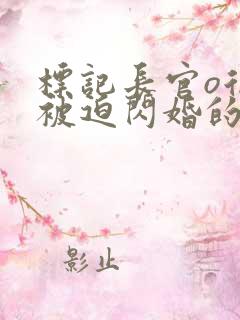 標記長官o後
被迫閃婚的
影止